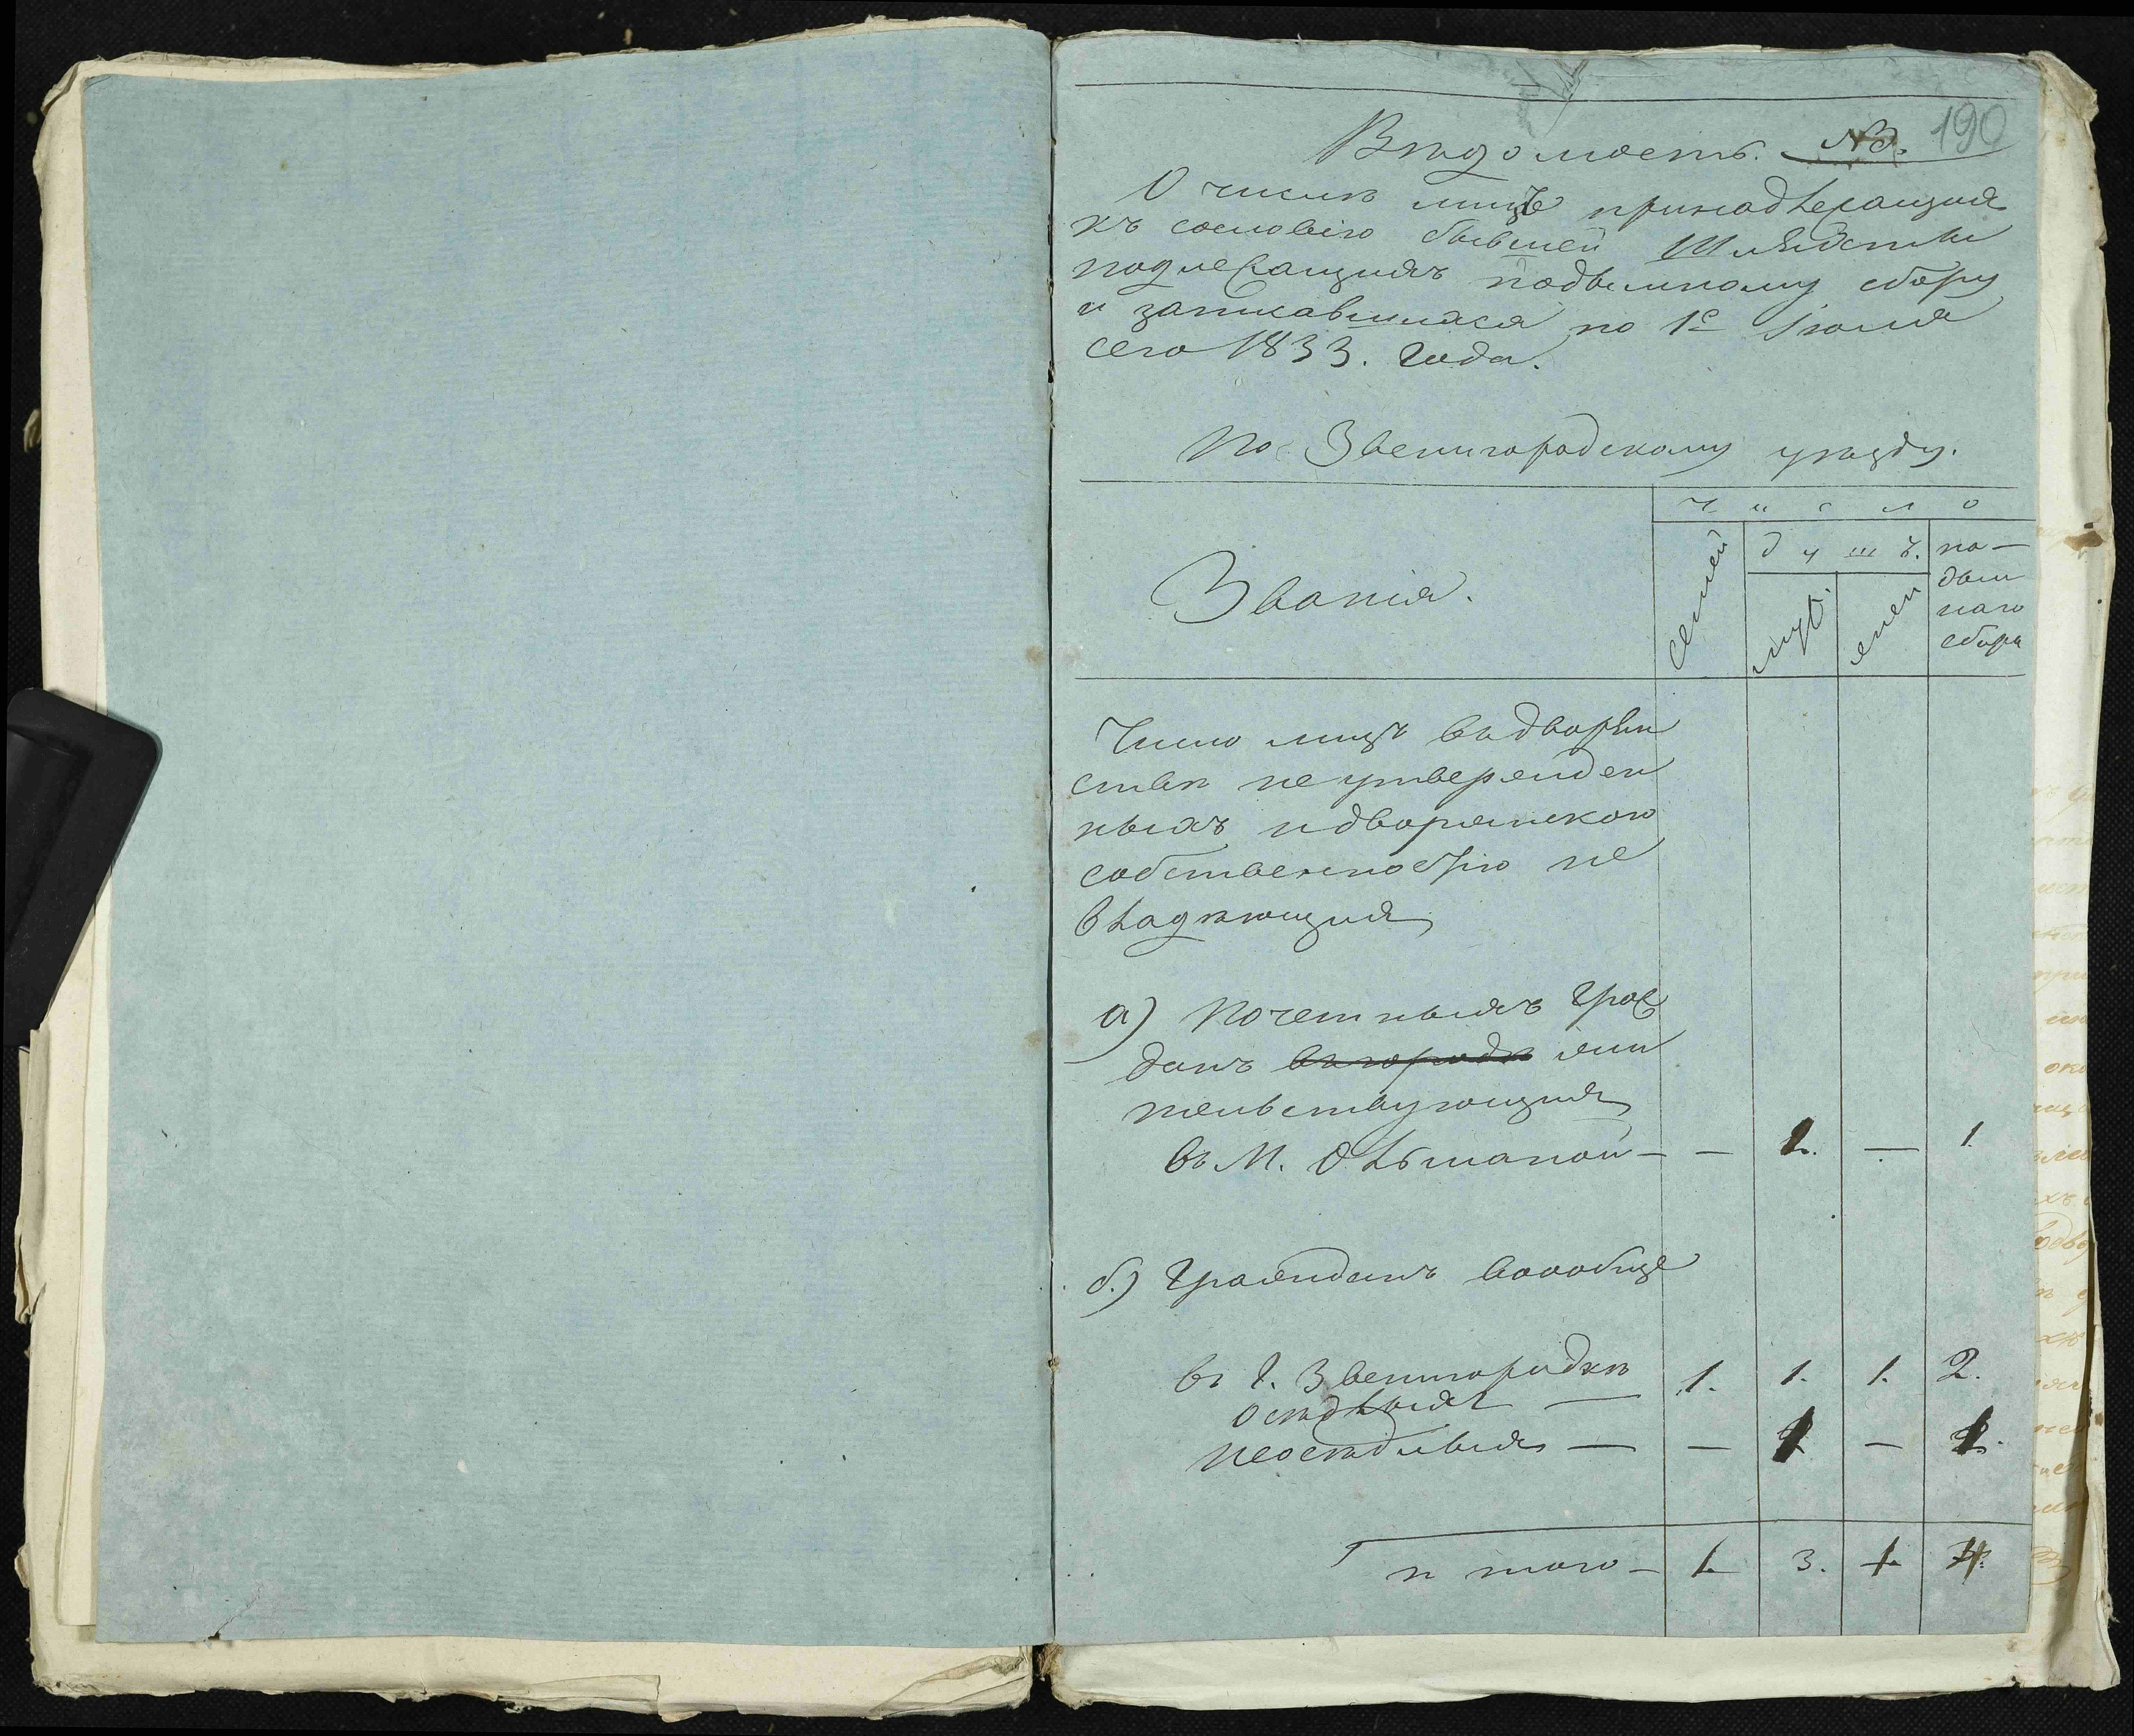 190
Вѣдомость. №
О числѣ лицъ принадлежащихъ
къ сословію бывшей Шляхты
подлежащихъ подымному сбору
и записавшихся по 1е Іюля
сего 1833. года.
По Звенигородскому уѣзду.
Число
Званія.
Семей
душъ.
муж.
жен
по-
дым
наго
сбора
Число лицъ въ дворян
ствѣ не утвержден
ныхъ и дворянскою
собственностію не
владѣющихъ
а) Почетныхъ Граж
данъ въ городѣ жи
тельствующихъ
въ М. Ольшаной — — 1. — 1.
б.) Гражданъ вообще
въ г. Звенигородкѣ
осѣдлыхъ — 1. 1. 1. 2.
неосѣдлыхъ — — 1 — 1.
И того — 1. 3. 1. 4.